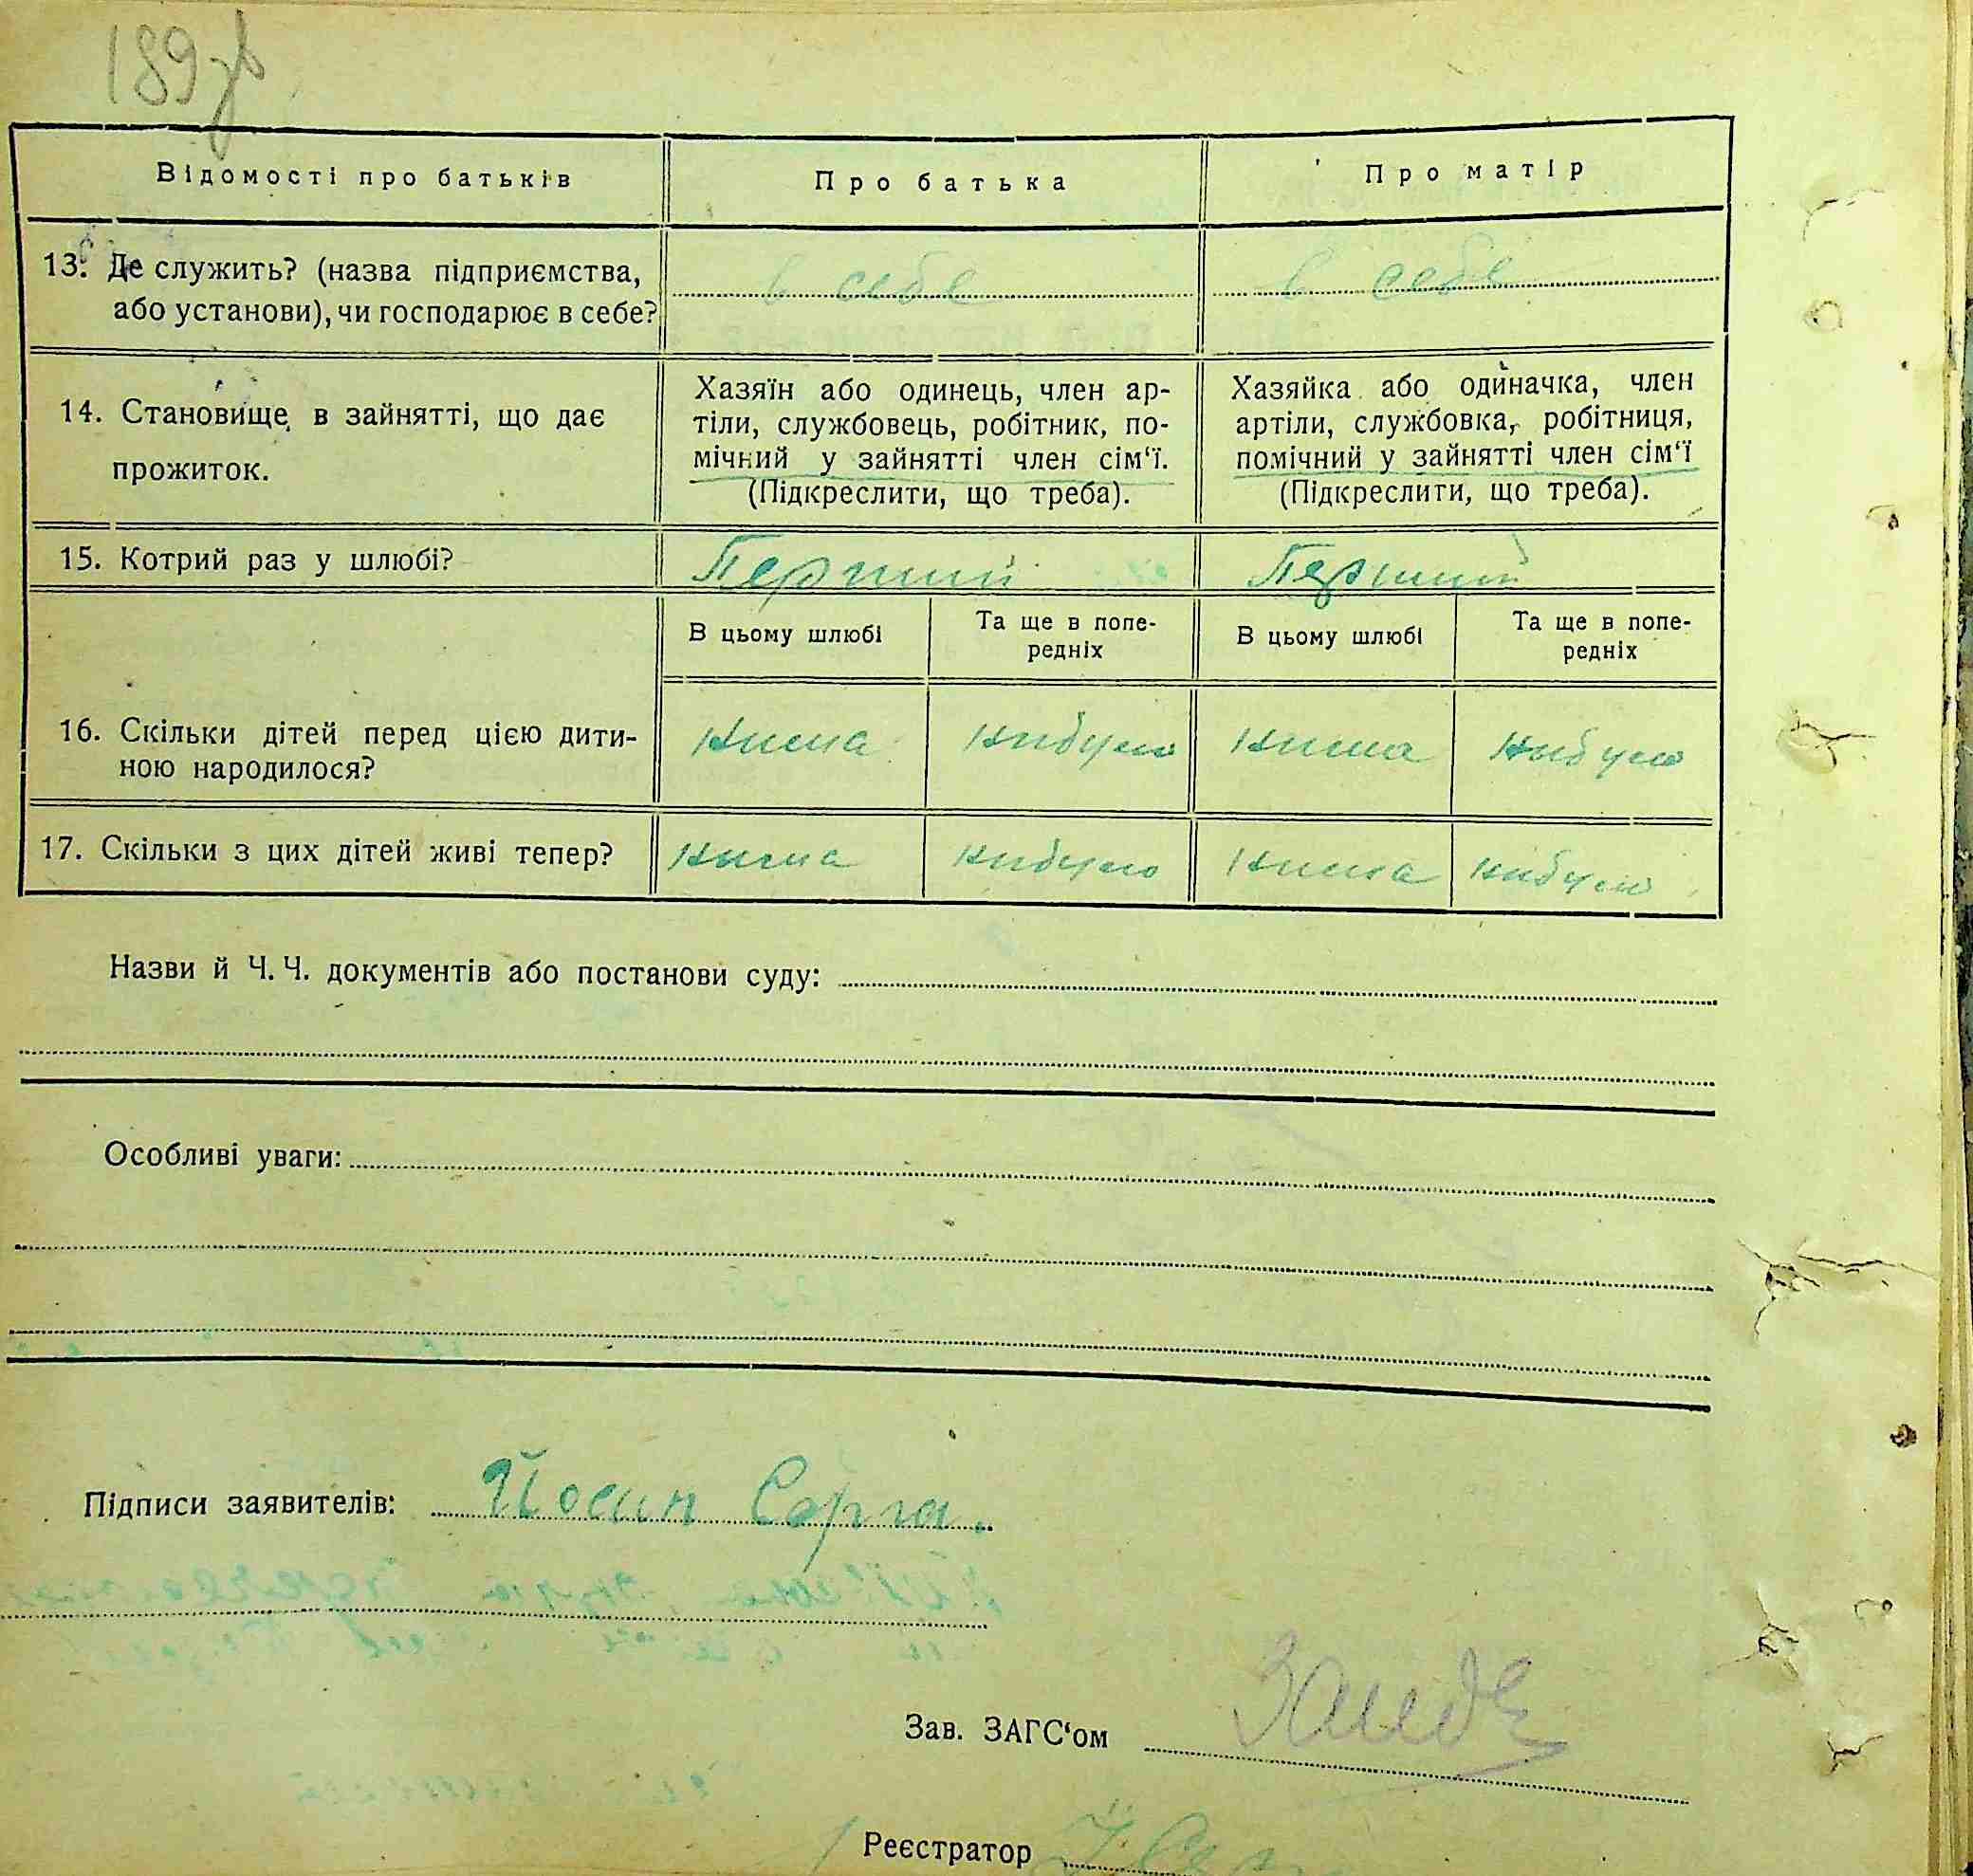 189зв
Відомості про батьків
Про батька
Про матір
13. Де служить? (назва підприємства,
або установи), чи господарює в себе?
в себе
в себе
14. Становище в зайнятті, що дає
прожиток.
Хазяїн або одинець, член ар-
тіли, службовець, робітник, по-
мічний у зайнятті член сім‘ї.
(Підкреслити, що треба).
Хазяйка або одиначка, член
артіли, службовка, робітниця,
помічний у зайнятті член сім‘ї
(Підкреслити, що треба).
15. Котрий раз у шлюбі?
Перший
Перший
В цьому шлюбі
Та ще в попе-
редніх
В цьому шлюбі
Та ще в попе-
редніх
16. Скільки дітей перед цією дити-
ною народилося?
нима
нибуло
нима
нибуло
17. Скільки з цих дітей живі тепер?
нима
нибуло
нима
нибуло
Назви й Ч. Ч. документів або постанови суду:
Особливі уваги:
Підписи заявителів: Йосип
Зав. ЗАГС‘ом
Реєстратор